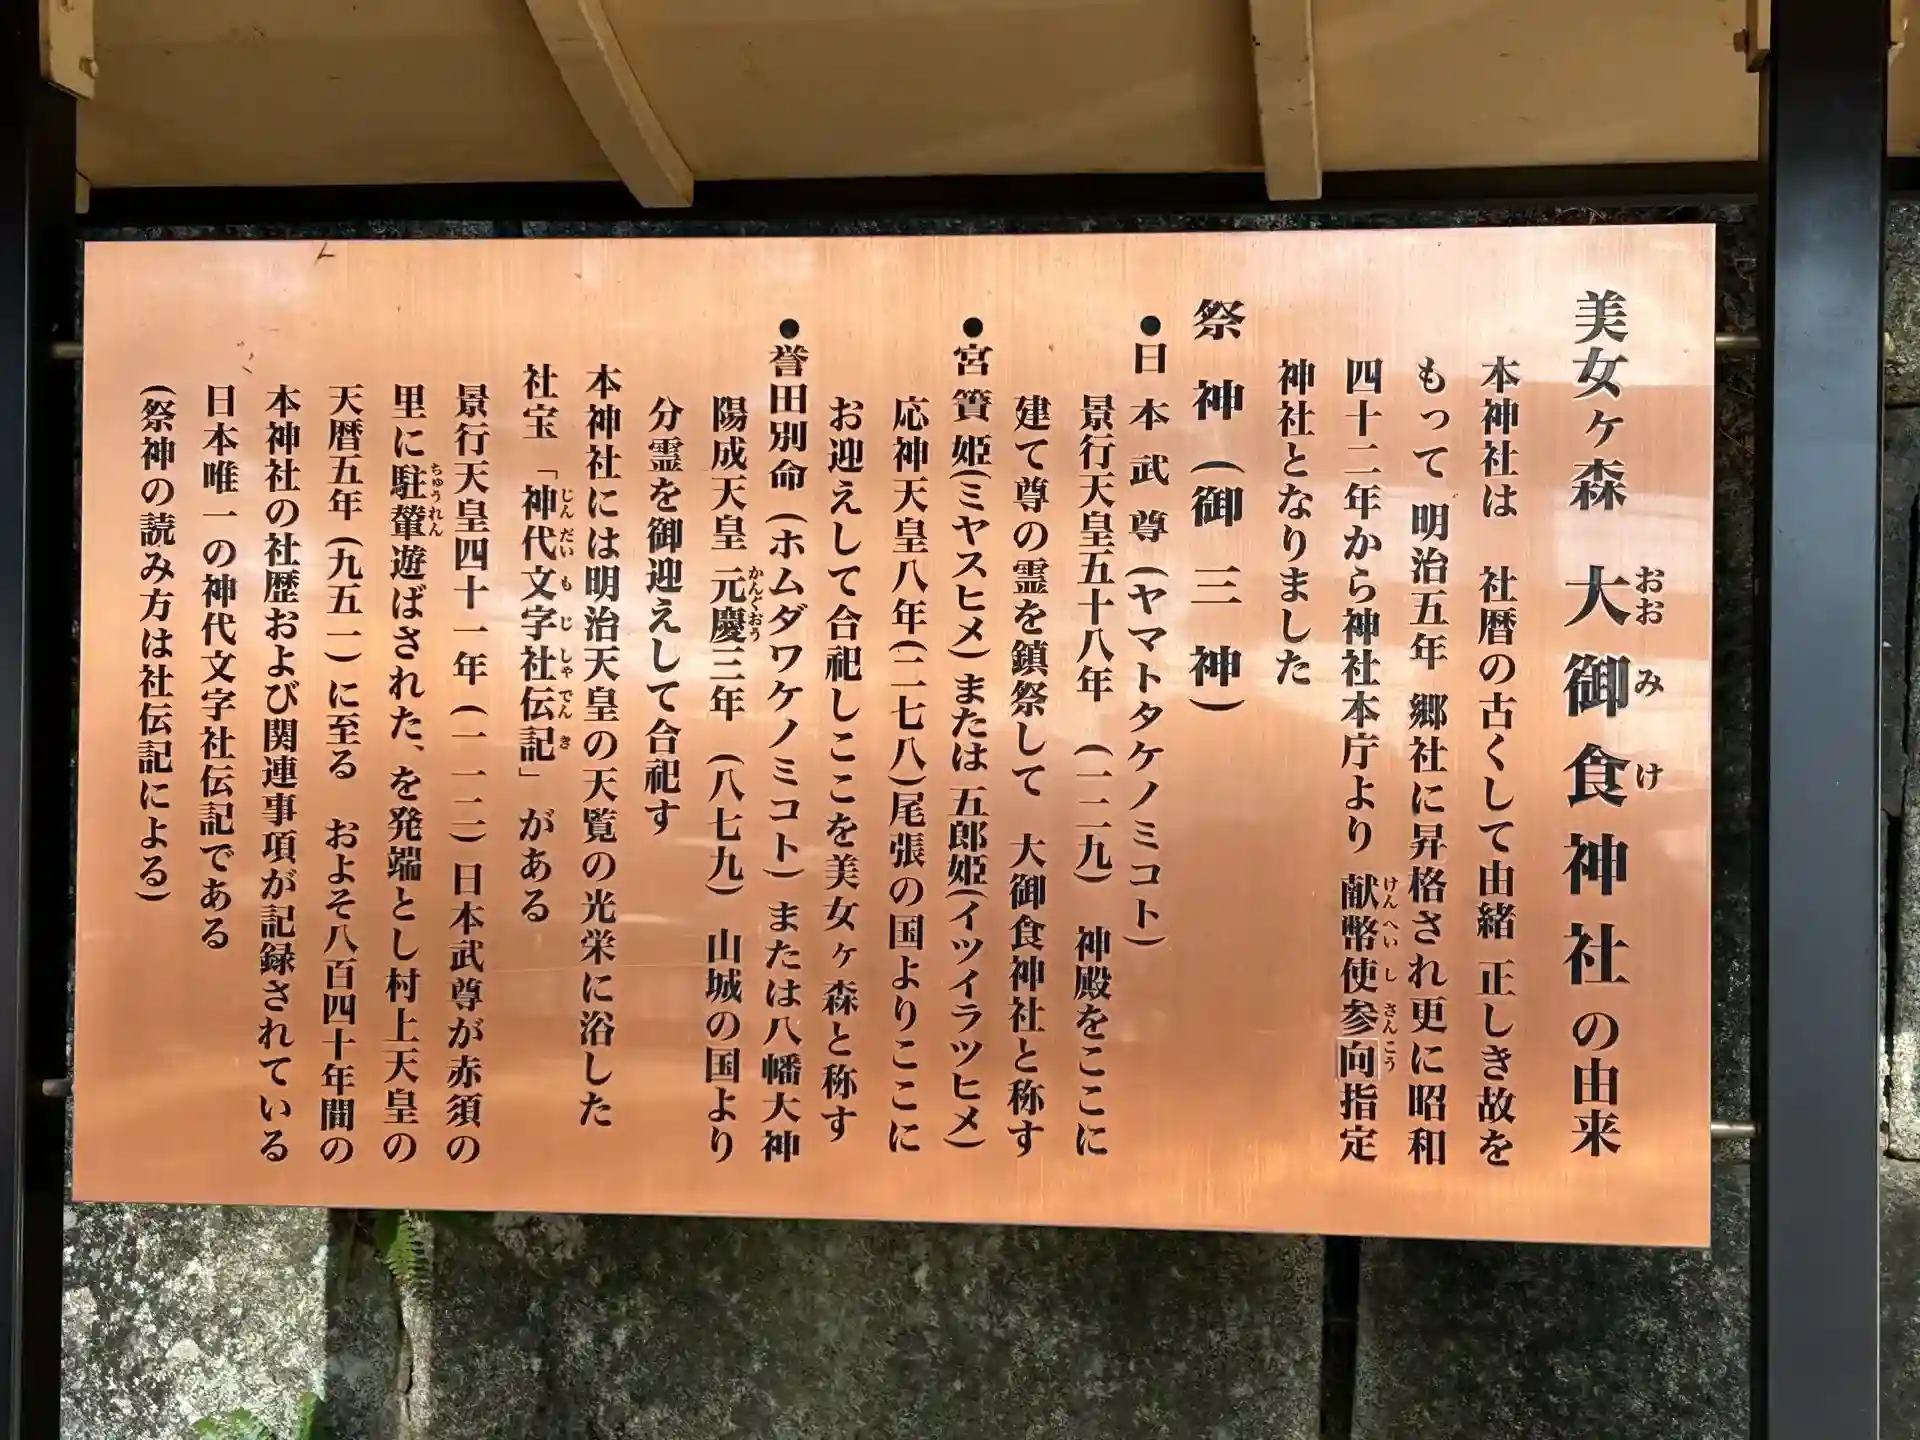 美女ヶ森 大御食神社の由来
おおみけ
本神社は 社暦の古くして由緒 正しき故を
もって 明治五年 郷社に昇格され更に昭和
四十二年から神社本庁より 献幣使参向指定
けんぺいしさんこう
神社となりました
祭神(御三神)
●日本武尊(ヤマトタケノミコト)
景行天皇五十八年 (一二九) 神殿をここに
建て尊の霊を鎮祭して 大御食神社と称す
●宮簀姫(ミヤスヒメ)または 五郎姫(イツイラツヒメ)
応神天皇八年(二七八)尾張の国よりここに
お迎えして合祀しここを美女ヶ森と称す
●誉田別命(ホムダワケノミコト)または八幡大神
陽成天皇 元慶三年 (八七九) 山城の国より
かんぐおう
分霊を御迎えして合祀す
本神社には明治天皇の天覧の光栄に浴した
社宝「神代文字社伝記」がある
じんだいもじしゃでんき
景行天皇四十一年(一一二)日本武尊が赤須の
里に駐輦遊ばされた、を発端とし村上天皇の
ちゅうれん
天暦五年(九五一)に至る およそ八百四十年間の
本神社の社歴および関連事項が記録されている
日本唯一の神代文字社伝記である
(祭神の読み方は社伝記による)